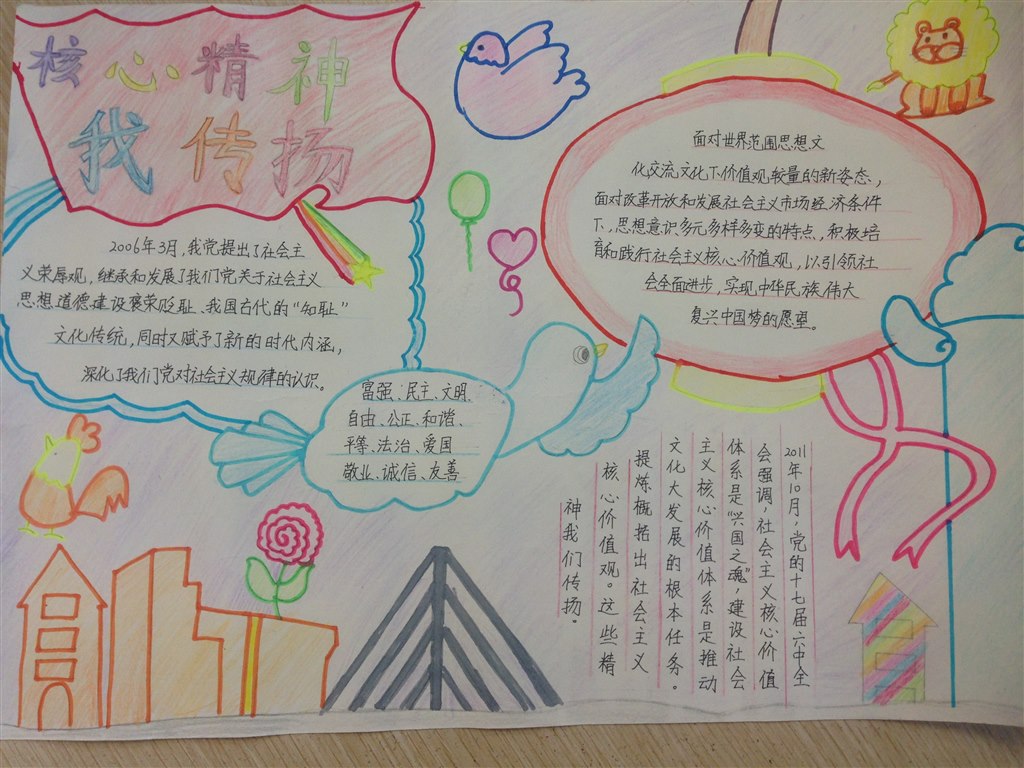 核心精神
我传扬
2006年3月,我党提出了社会主
义荣辱观,继承和发展了我们党关于社会主义
思想道德建设褒荣贬耻、我国古代的“知耻”
文化传统,同时又赋予了新的时代内涵,
深化了我们党对社会主义规律的认识。
富强、民主、文明、
自由、公正、和谐、
平等、法治、爱国
敬业、诚信、友善
面对世界范围思想文
化交流文化下价值观较量的新姿态,
面对改革开放和发展社会主义市场经济条件
下,思想意识多元多样多变的特点,积极培
育和践行社会主义核心价值观,以引领社
会全面进步,实现中华民族伟大
复兴中国梦的愿望。
2011年10月,党的十七届六中全
会强调,社会主义核心价值
体系是“兴国之魂”,建设社会
主义核心价值体系是推动
文化大发展的根本任务。
提炼概括出社会主义
核心价值观。这些精
神我们传扬。